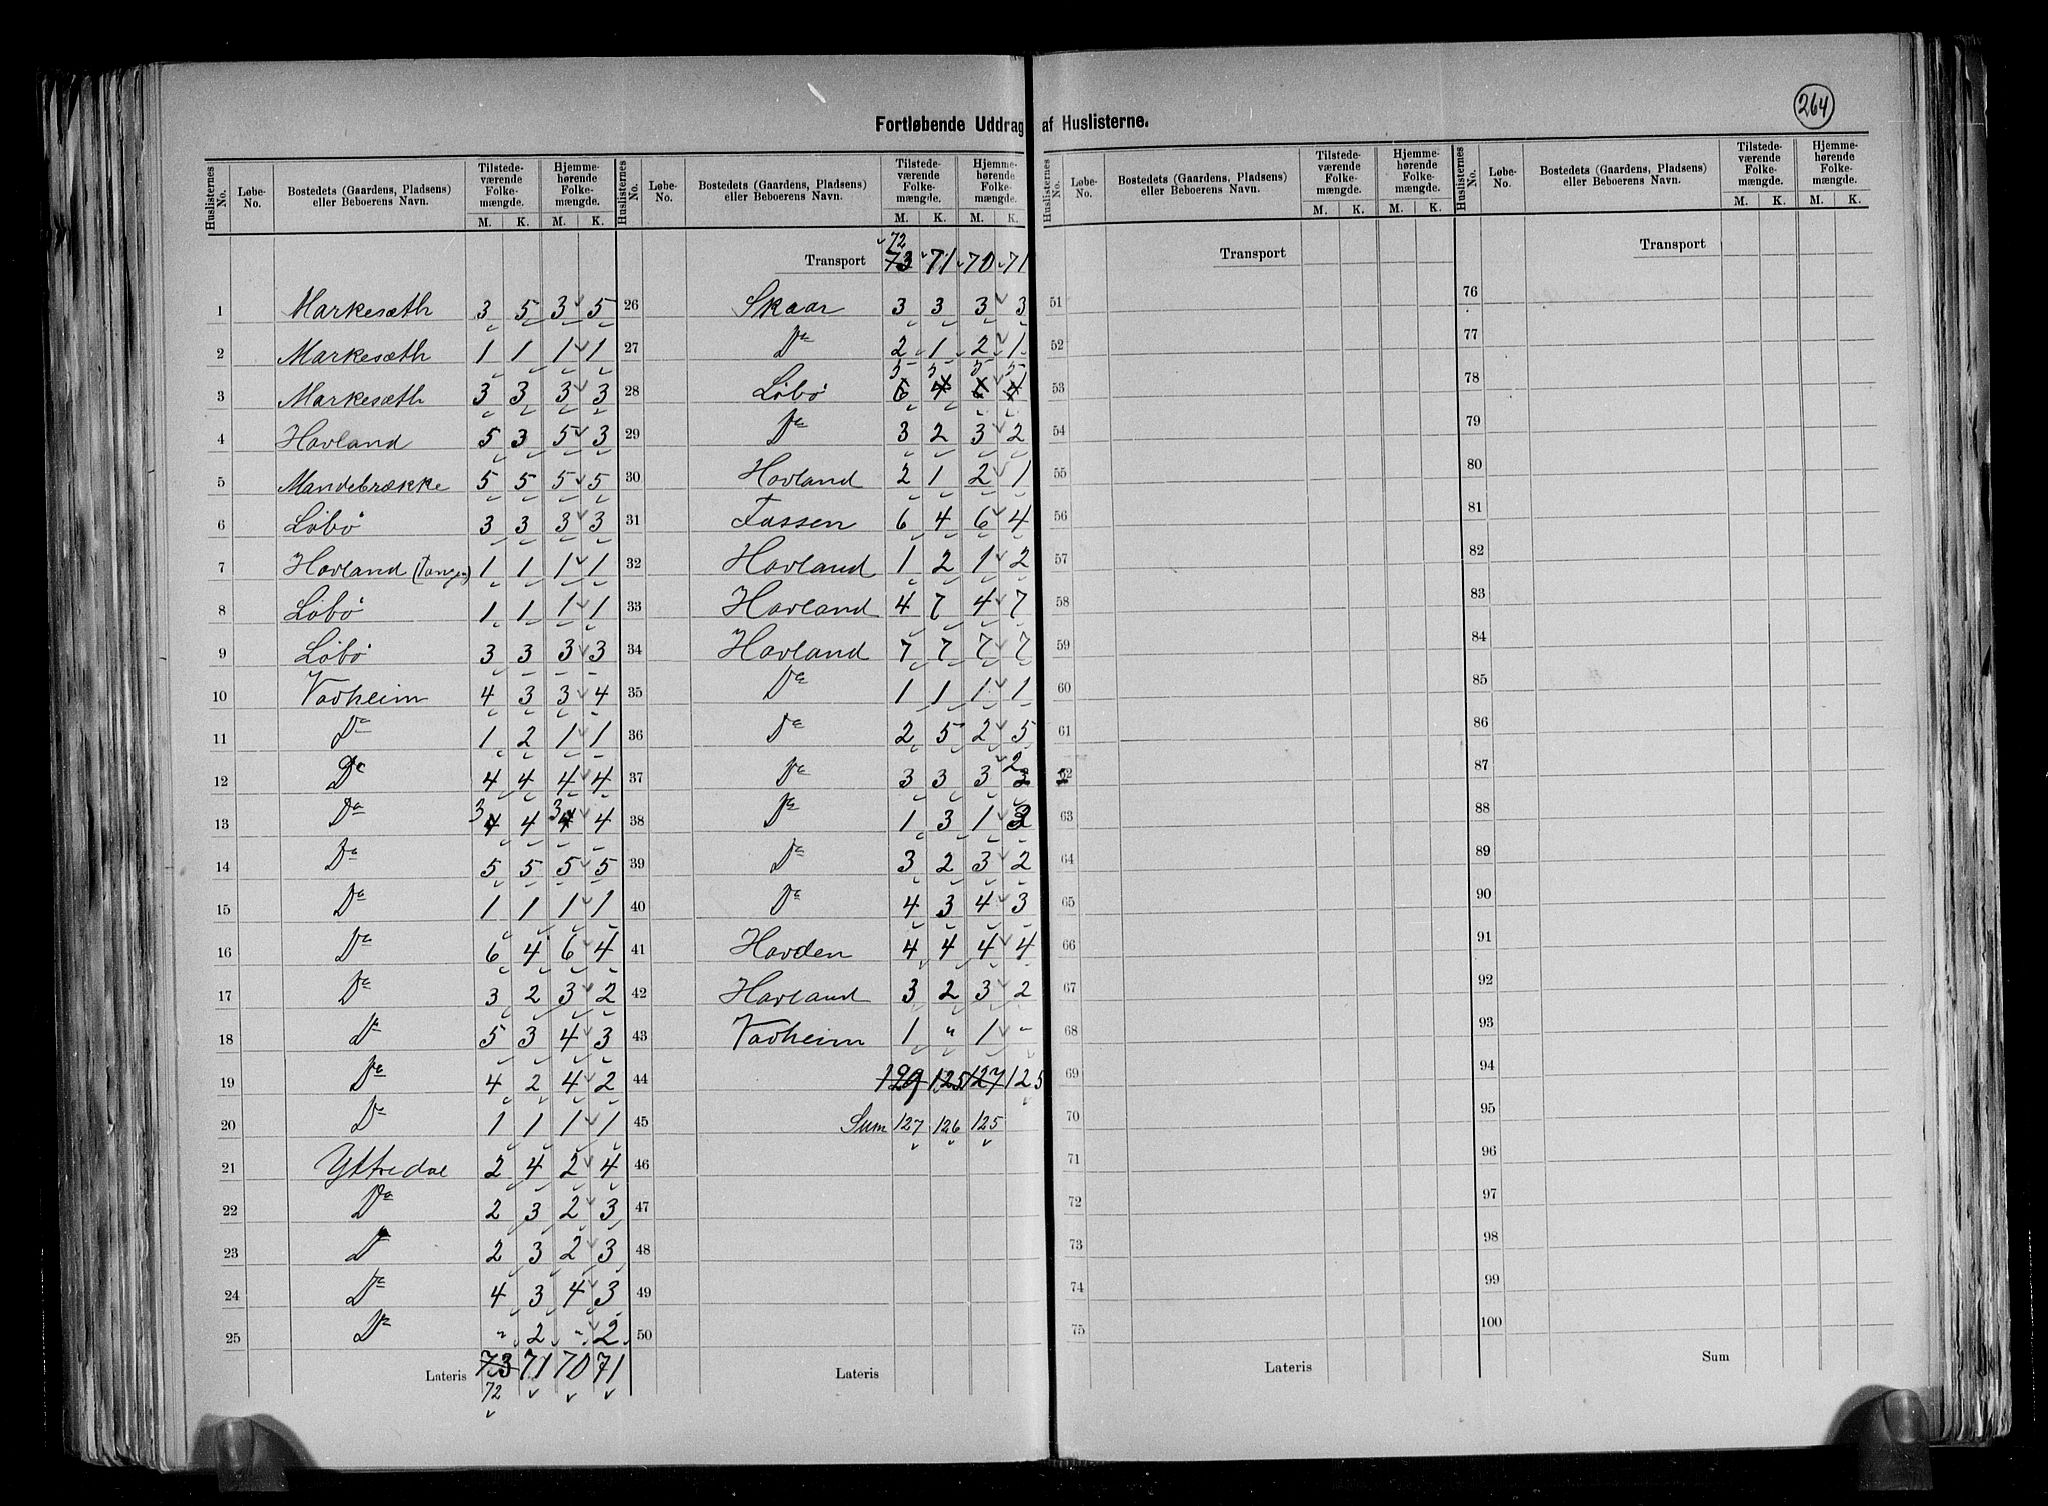 264
Fortløbende Uddrag af Huslisterne.
Huslisternes No. Løbe-No. Bostedets (Gaardens, Pladsens) eller Beboerens Navn. Tilstede-værende Folke-mængde. M. K. Hjemme-hørende Folke-mængde. M. K.
1 Markesæth 3 5 3 5
2 Markesæth 1 1 1 1
3 Markesæth 3 3 3 3
4 Hovland 5 3 5 3
5 Mandebrække 5 5 5 5
6 Løbø 3 3 3 3
7 Hovland (Tangen) 1 1 1 1
8 Løbø 1 1 1 1
9 Løbø 3 3 3 3
10 Vadheim 4 3 3 4
11 Do 1 2 1 1
12 Do 4 4 4 4
13 Do 3 4 4 3 4 4
14 Do 5 5 5 5
15 Do 1 1 1 1
16 Do 6 4 6 4
17 Do 3 2 3 2
18 Do 5 3 4 3
19 Do 4 2 4 2
20 Do 1 1 1 1
21 Yttredal 2 4 2 4
22 Do 2 3 2 3
23 Do 2 3 2 3
24 Do 4 3 4 3
25 Do " 2 " 2
Lateris 73 71 70 71
72
Huslisternes No. Løbe-No. Bostedets (Gaardens, Pladsens) eller Beboerens Navn. Tilstede-værende Folke-mængde. M. K. Hjemme-hørende Folke-mængde. M. K.
72
Transport 73 71 70 71
26 Skaar 3 3 3 3
27 Do 2 1 2 1
5 5 5 5
28 Løbø 6 4 6 4
29 Do 3 2 3 2
30 Hovland 2 1 2 1
31 Fassen 6 4 6 4
32 Hovland 1 2 1 2
33 Hovland 4 7 4 7
34 Hovland 7 7 7 7
35 Do 1 1 1 1
36 Do 2 5 2 5
37 Do 3 3 3 2
38 Do 1 3 1 3
39 Do 3 2 3 2
40 Do 4 3 4 3
41 Hovden 4 4 4 4
42 Hovland 3 2 3 2
43 Vadheim 1 " 1 "
44 129 125 127 125
45 Sum 127 126 125
46
47
48
49
50
Lateris
Huslisternes No. Løbe-No. Bostedets (Gaardens, Pladsens) eller Beboerens Navn. Tilstede-værende Folke-mængde. M. K. Hjemme-hørende Folke-mængde. M. K.
Transport
51
52
53
54
55
56
57
58
59
60
61
62
63
64
65
66
67
68
69
70
71
72
73
74
75
Lateris
Huslisternes No. Løbe-No. Bostedets (Gaardens, Pladsens) eller Beboerens Navn. Tilstede-værende Folke-mængde. M. K. Hjemme-hørende Folke-mængde. M. K.
Transport
76
77
78
79
80
81
82
83
84
85
86
87
88
89
90
91
92
93
94
95
96
97
98
99
100
Sum